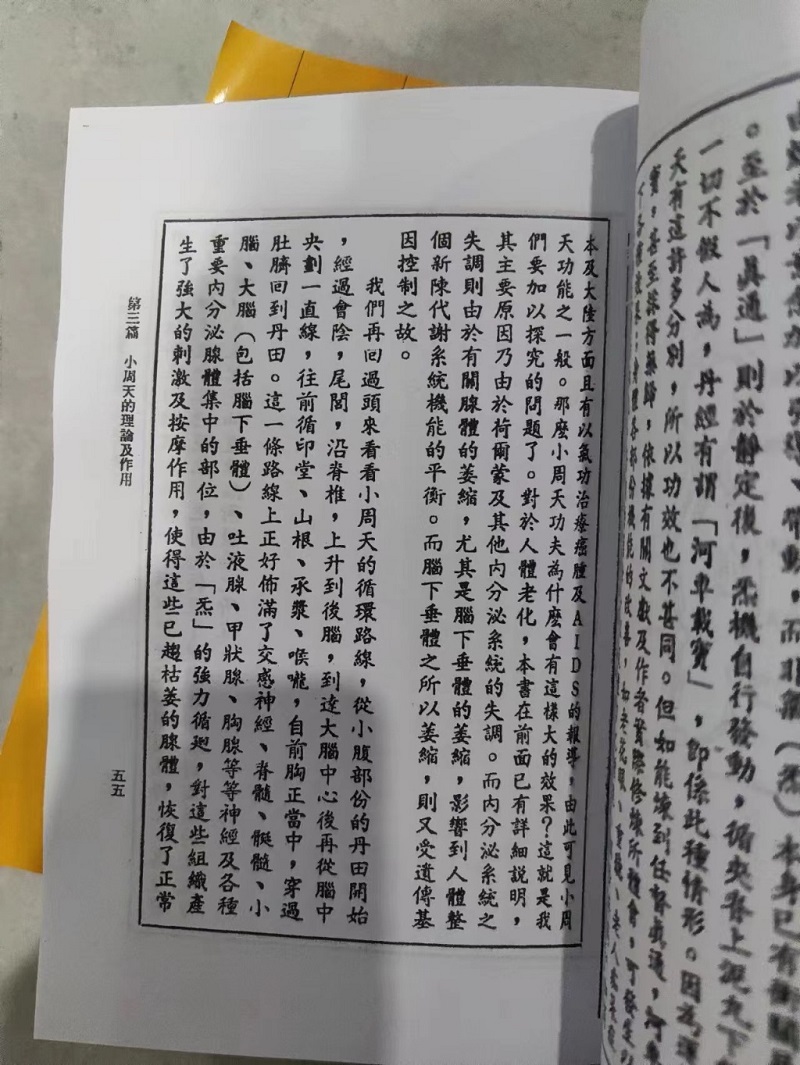 。至於「真通」則於靜定後，炁機自行發動，循夾脊上泥丸下
一切不假人為，丹經有謂「河車載寶」，即係此種情形。因為運
天有這許多分別，所以功效也不甚同。但如能煉到任督真通，河車
甚至採得藥歸，依據有關文獻及作者實際修煉所體會，可發生以
本及大陸方面且有以氣功治療癌腫及AIDS的報導，由此可見小周
天功能之一般。那麼小周天功夫為什麼會有這樣大的效果？這就是我
們要加以探究的問題了。對於人體老化，本書在前面已有詳細說明，
其主要原因乃由於荷爾蒙及其他內分泌系統的失調。而內分泌系統之
失調則由於有關腺體的萎縮，尤其是腦下垂體的萎縮，影響到人體整
個新陳代謝系統機能的平衡。而腦下垂體之所以萎縮，則又受遺傳基
因控制之故。
我們再回過頭來看看小周天的循環路線，從小腹部份的丹田開始
，經過會陰，尾閭，沿脊椎，上升到後腦，到達大腦中心後再從腦中
央劃一直線，往前循印堂、山根、承漿、喉嚨，自前胸正當中，穿過
肚臍回到丹田。這一條路線上正好佈滿了交感神經、脊髓、延髓、小
腦、大腦（包括腦下垂體）、吐液腺、甲狀腺、胸腺等等神經及各種
重要內分泌腺體集中的部位，由於「炁」的強力循迴，對這些組織產
生了強大的刺激及按摩作用，使得這些已趨枯萎的腺體，恢復了正常
第三篇　小周天的理論及作用
五五